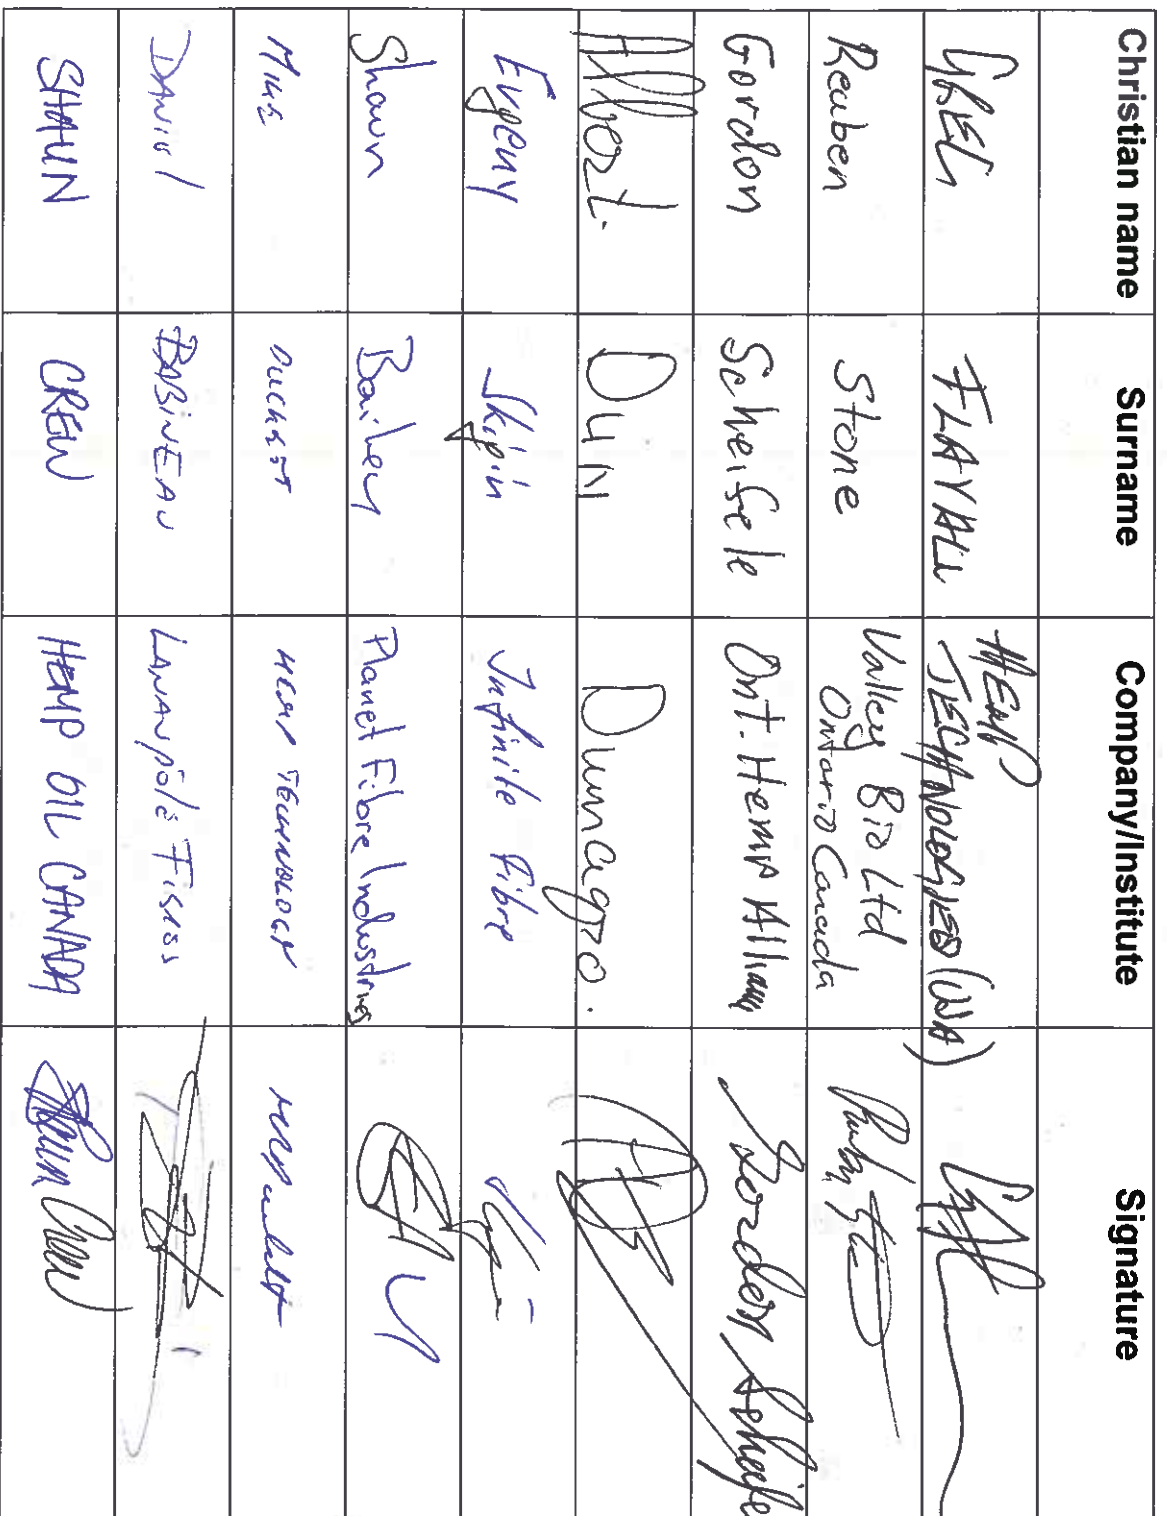 Christian name Surname Company/Institute Signature
FLAVALL HEMP
TECHNOLOGIES (WA)
Reuben Stone Valley Bio Ltd
Ontario Canada
Gordon Scheifele Ont. Hemp Gordon Scheifele
Albert. DUN Dunagro.
Evgeny Skigin Infinite Fibre
Shawn Bailey Planet Fibre Industries
Mike HEMP TECHNOLOGY
DANIEL BABINEAU LANAUPÔLE FIBRES
SHAUN CREW HEMP OIL CANADA Shaun Crew